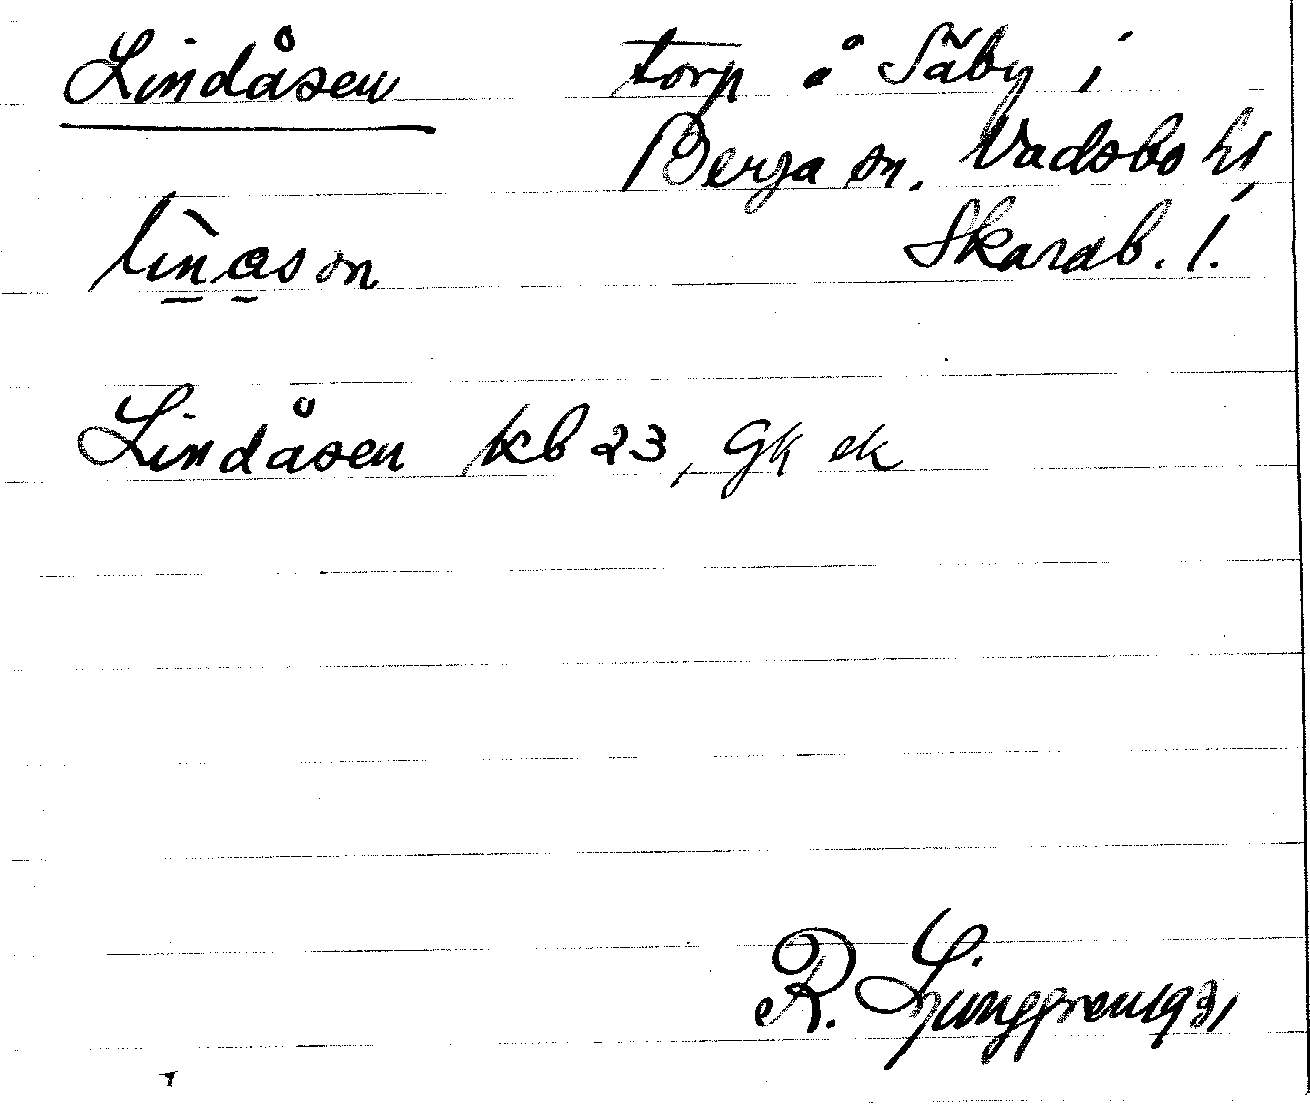 Lindåsen torp å Säby i
Berga sn. Vadsbo hd,
Skarab. l.
lìnasn
Lindåsen kb 23, Gk ek
R. Ljunggren 1931